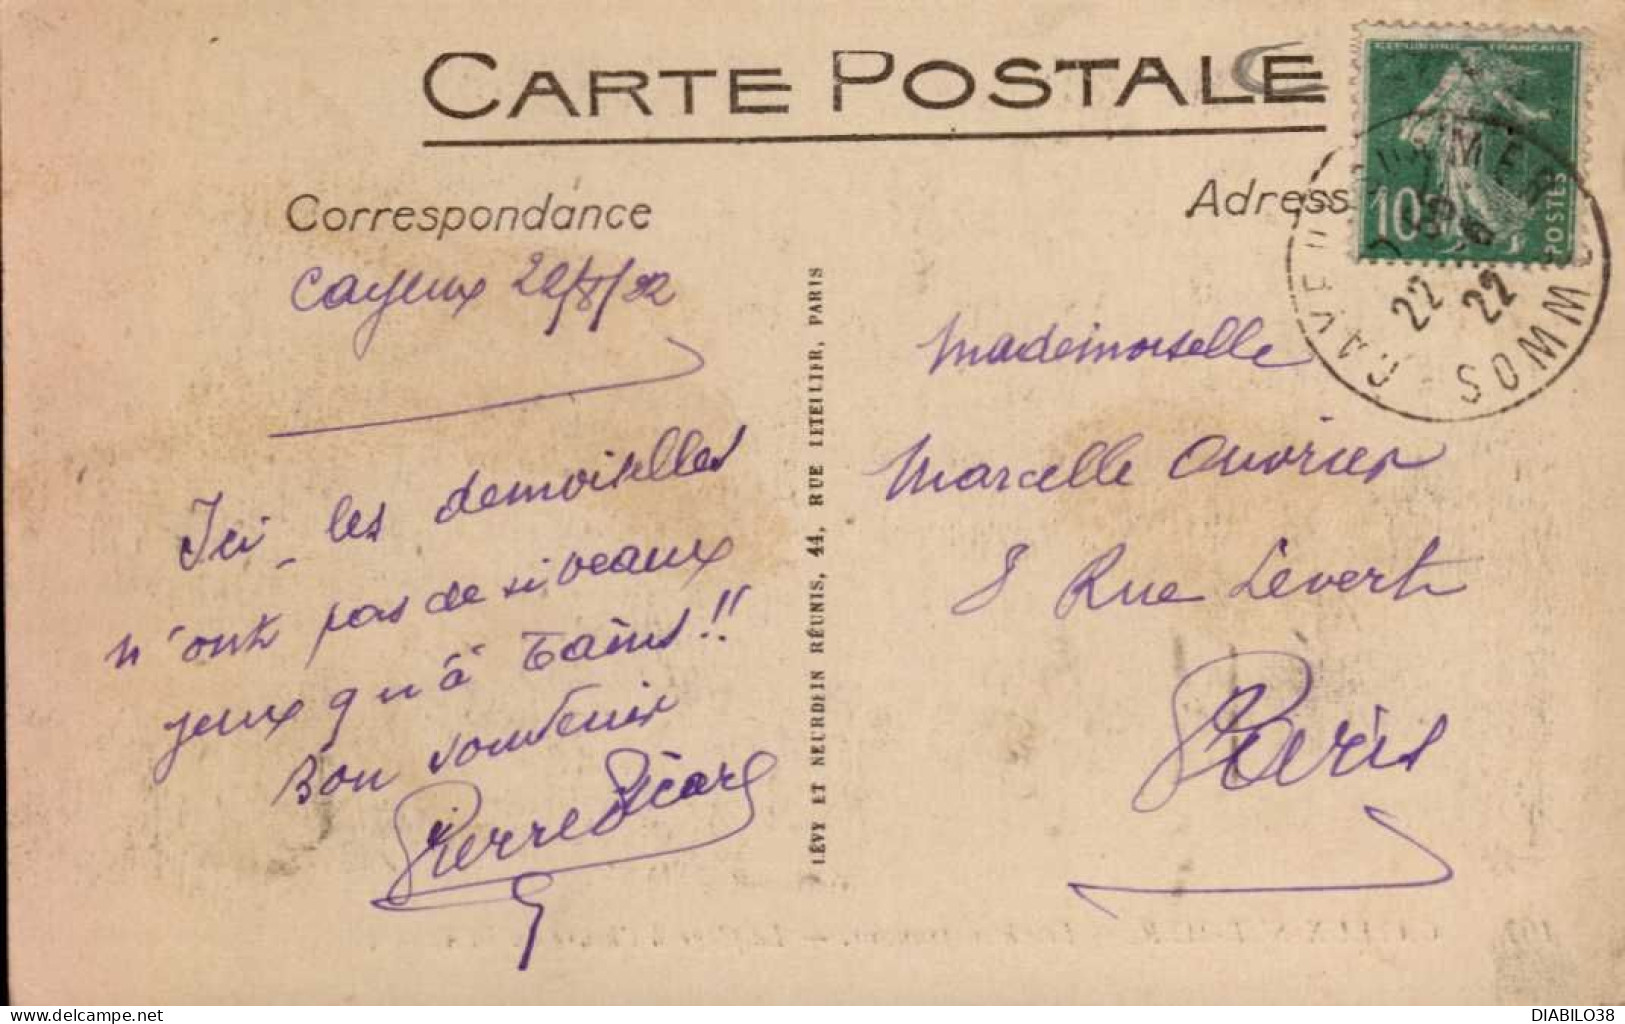 CARTE POSTALE
Correspondance
Adresse
RÉPUBLIQUE FRANÇAISE
10c
POSTES
CAYEUX-S-MER
22
22
SOMME
Cayeux 22/8/22
Ici, les demoiselles
n'ont pas de si beaux
yeux qu'à
Bon souvenir
Pierre Sicard
LÉVY ET NEURDEIN RÉUNIS, 44, RUE LETELLIER, PARIS
Mademoiselle
Marcelle Ouvrier
8 Rue Levert
Paris
DIABILO38